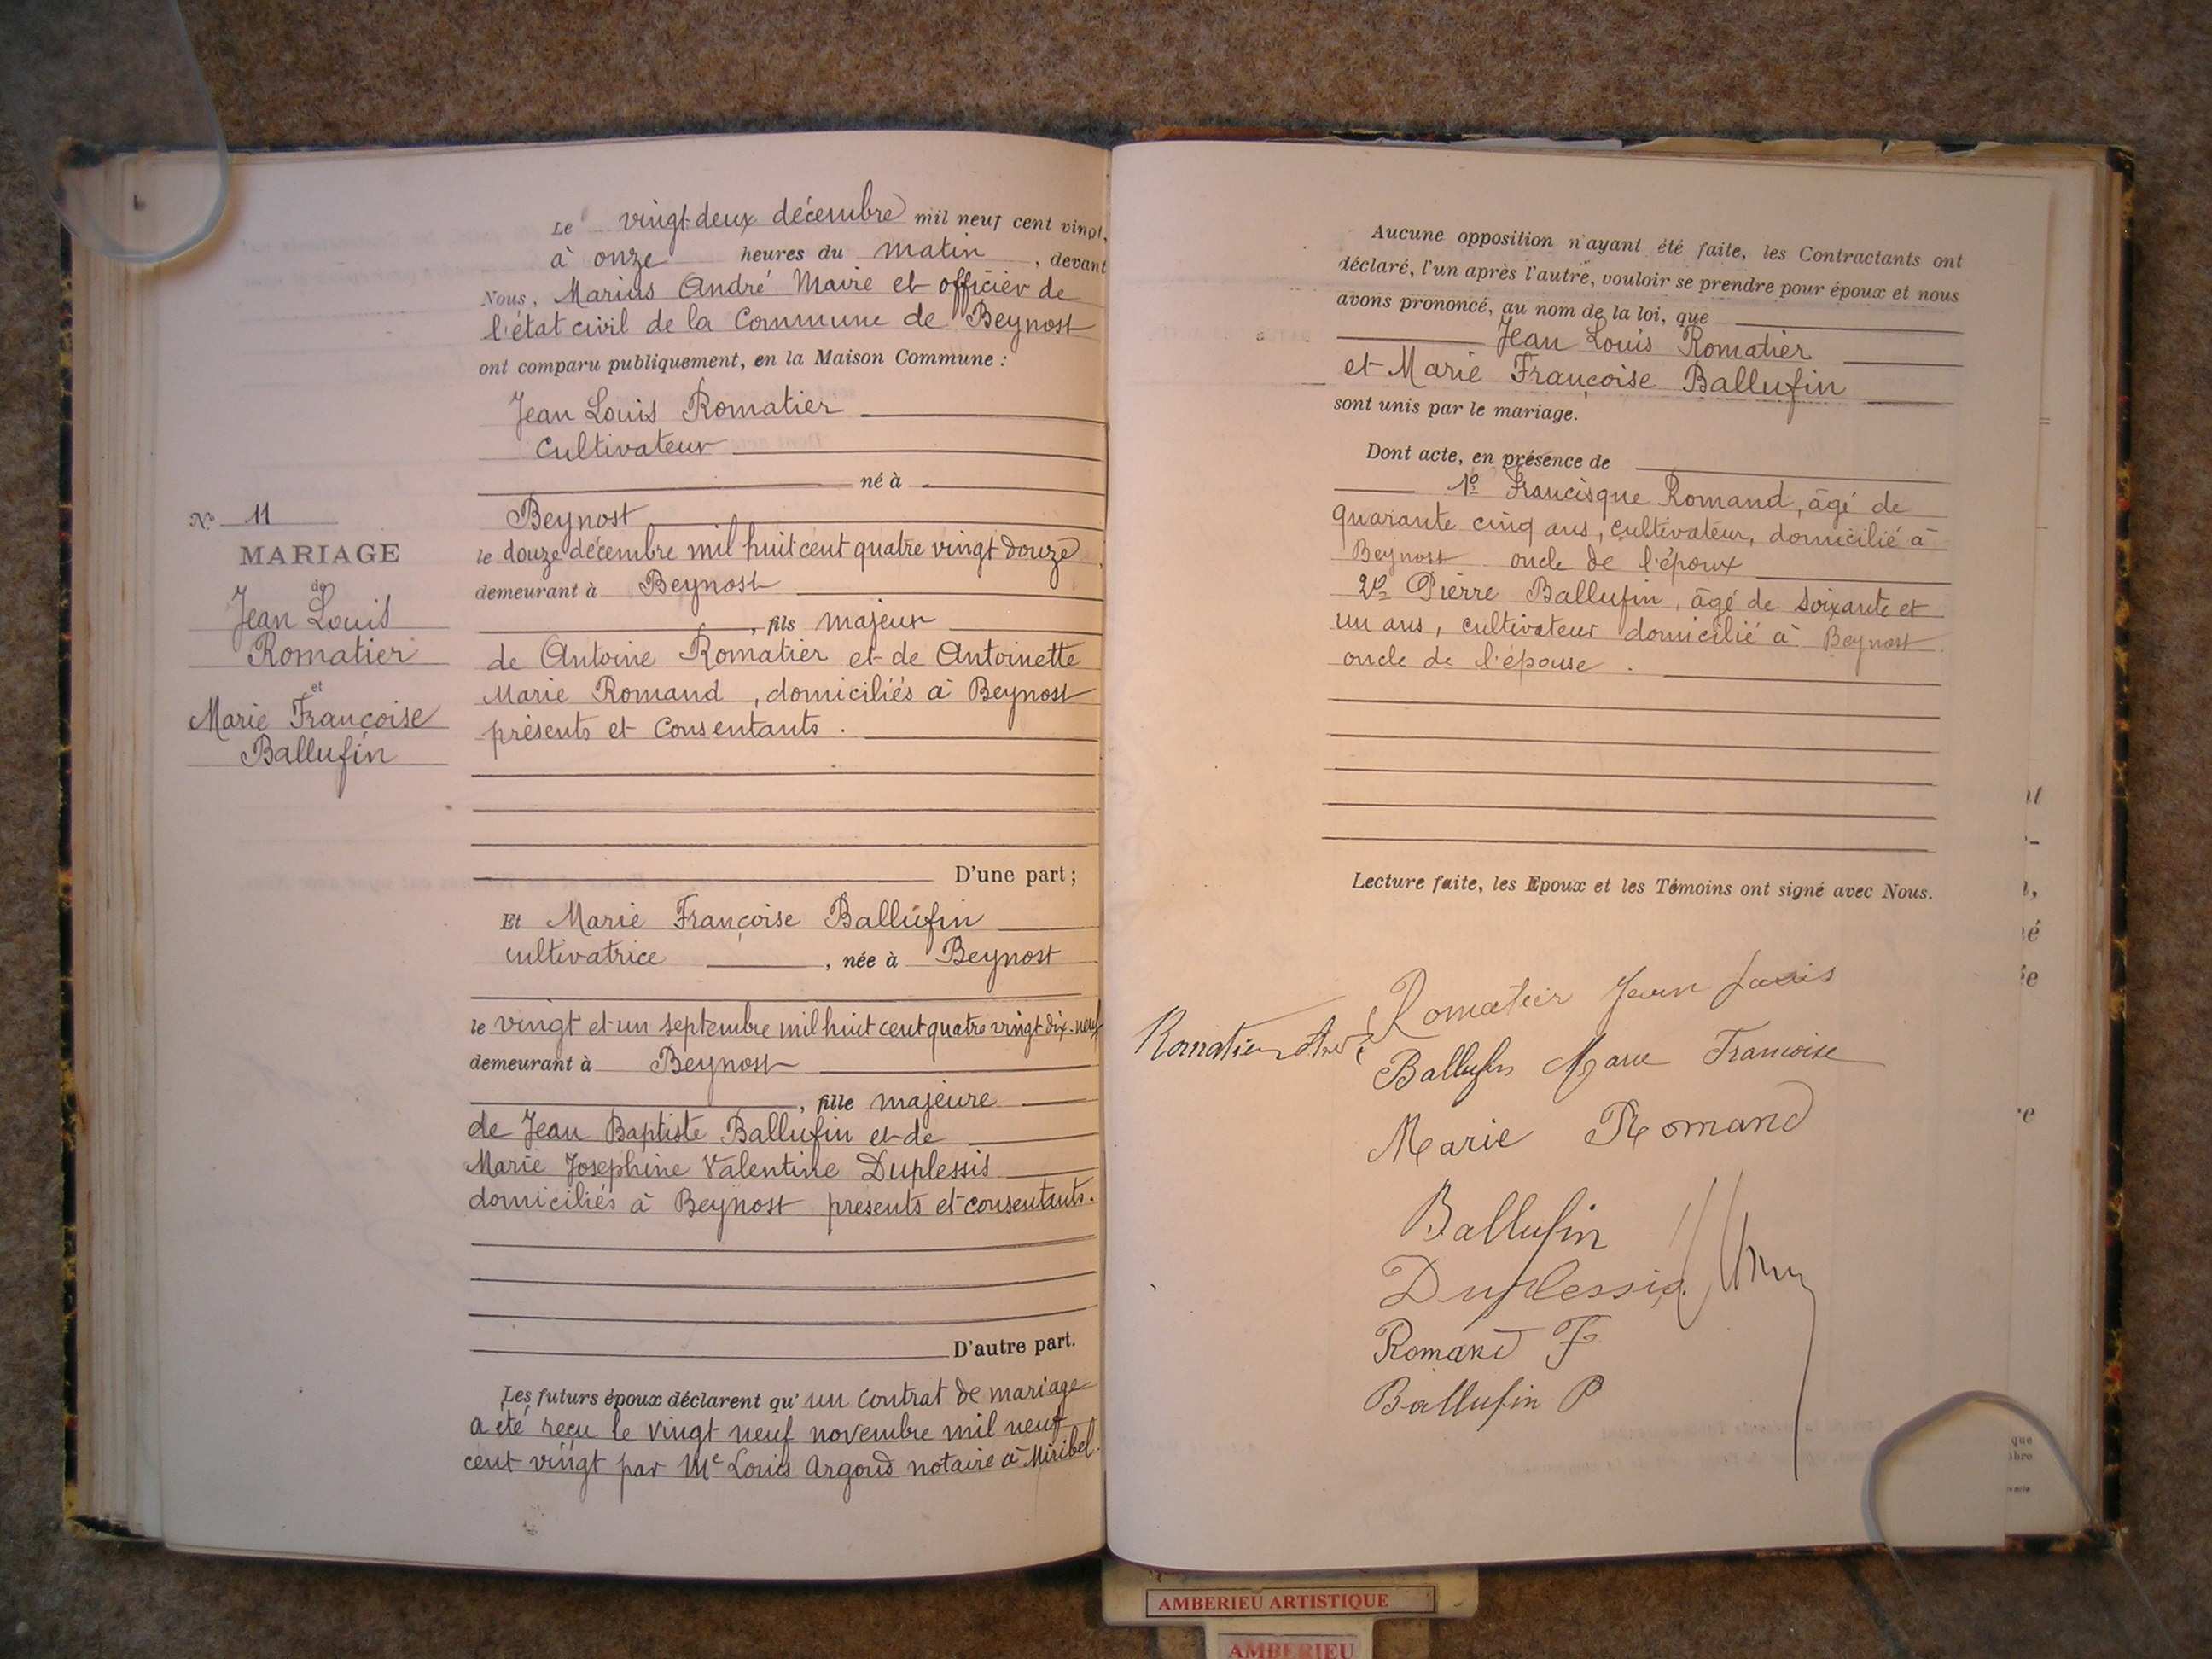 Le vingt deux décembre mil neuf cent vingt,
à onze heures du matin, devant
Nous, Marius André Maire et officier de
l'état civil de la Commune de Beynost
ont comparu publiquement, en la Maison Commune :
Jean Louis Romatier
Cultivateur
né à
Beynost
le douze décembre mil huit cent quatre vingt douze
demeurant à Beynost
, fils majeur
de Antoine Romatier et de Antoinette
Marie Romand, domiciliés à Beynost
présents et consentants.
D'une part ;
Et Marie Françoise Ballufin
cultivatrice, née à Beynost
le vingt et un septembre mil huit cent quatre vingt dix-neuf
demeurant à Beynost
, fille majeure
de Jean Baptiste Ballufin et de
Marie Josephine Valentine Duplessis
domiciliés à Beynost presents et consentants.
D'autre part.
Les futurs époux déclarent qu'un contrat de mariage
a été reçu le vingt neuf novembre mil neuf
cent vingt par Me Louis Argoud notaire à Miribel.
No 11
MARIAGE
de
Jean Louis
Romatier
et
Marie Françoise
Ballufin
Aucune opposition n'ayant été faite, les Contractants ont
déclaré, l'un après l'autre, vouloir se prendre pour époux et nous
avons prononcé, au nom de la loi, que
Jean Louis Romatier
et Marie Françoise Ballufin
sont unis par le mariage.
Dont acte, en présence de
1o Francisque Romand, âgé de
quarante cinq ans, cultivateur, domicilié à
Beynost oncle de l'époux
2o Pierre Ballufin, âgé de soixante et
un ans, cultivateur domicilié à Beynost
oncle de l'épouse.
Lecture faite, les Epoux et les Témoins ont signé avec Nous.
Romatier Jean Louis
Romatier
Ballufin Marie Francoise
Marie Romand
Ballufin
Duplessis
Romand F
Ballufin P
AMBERIEU ARTISTIQUE
AMBERIEU